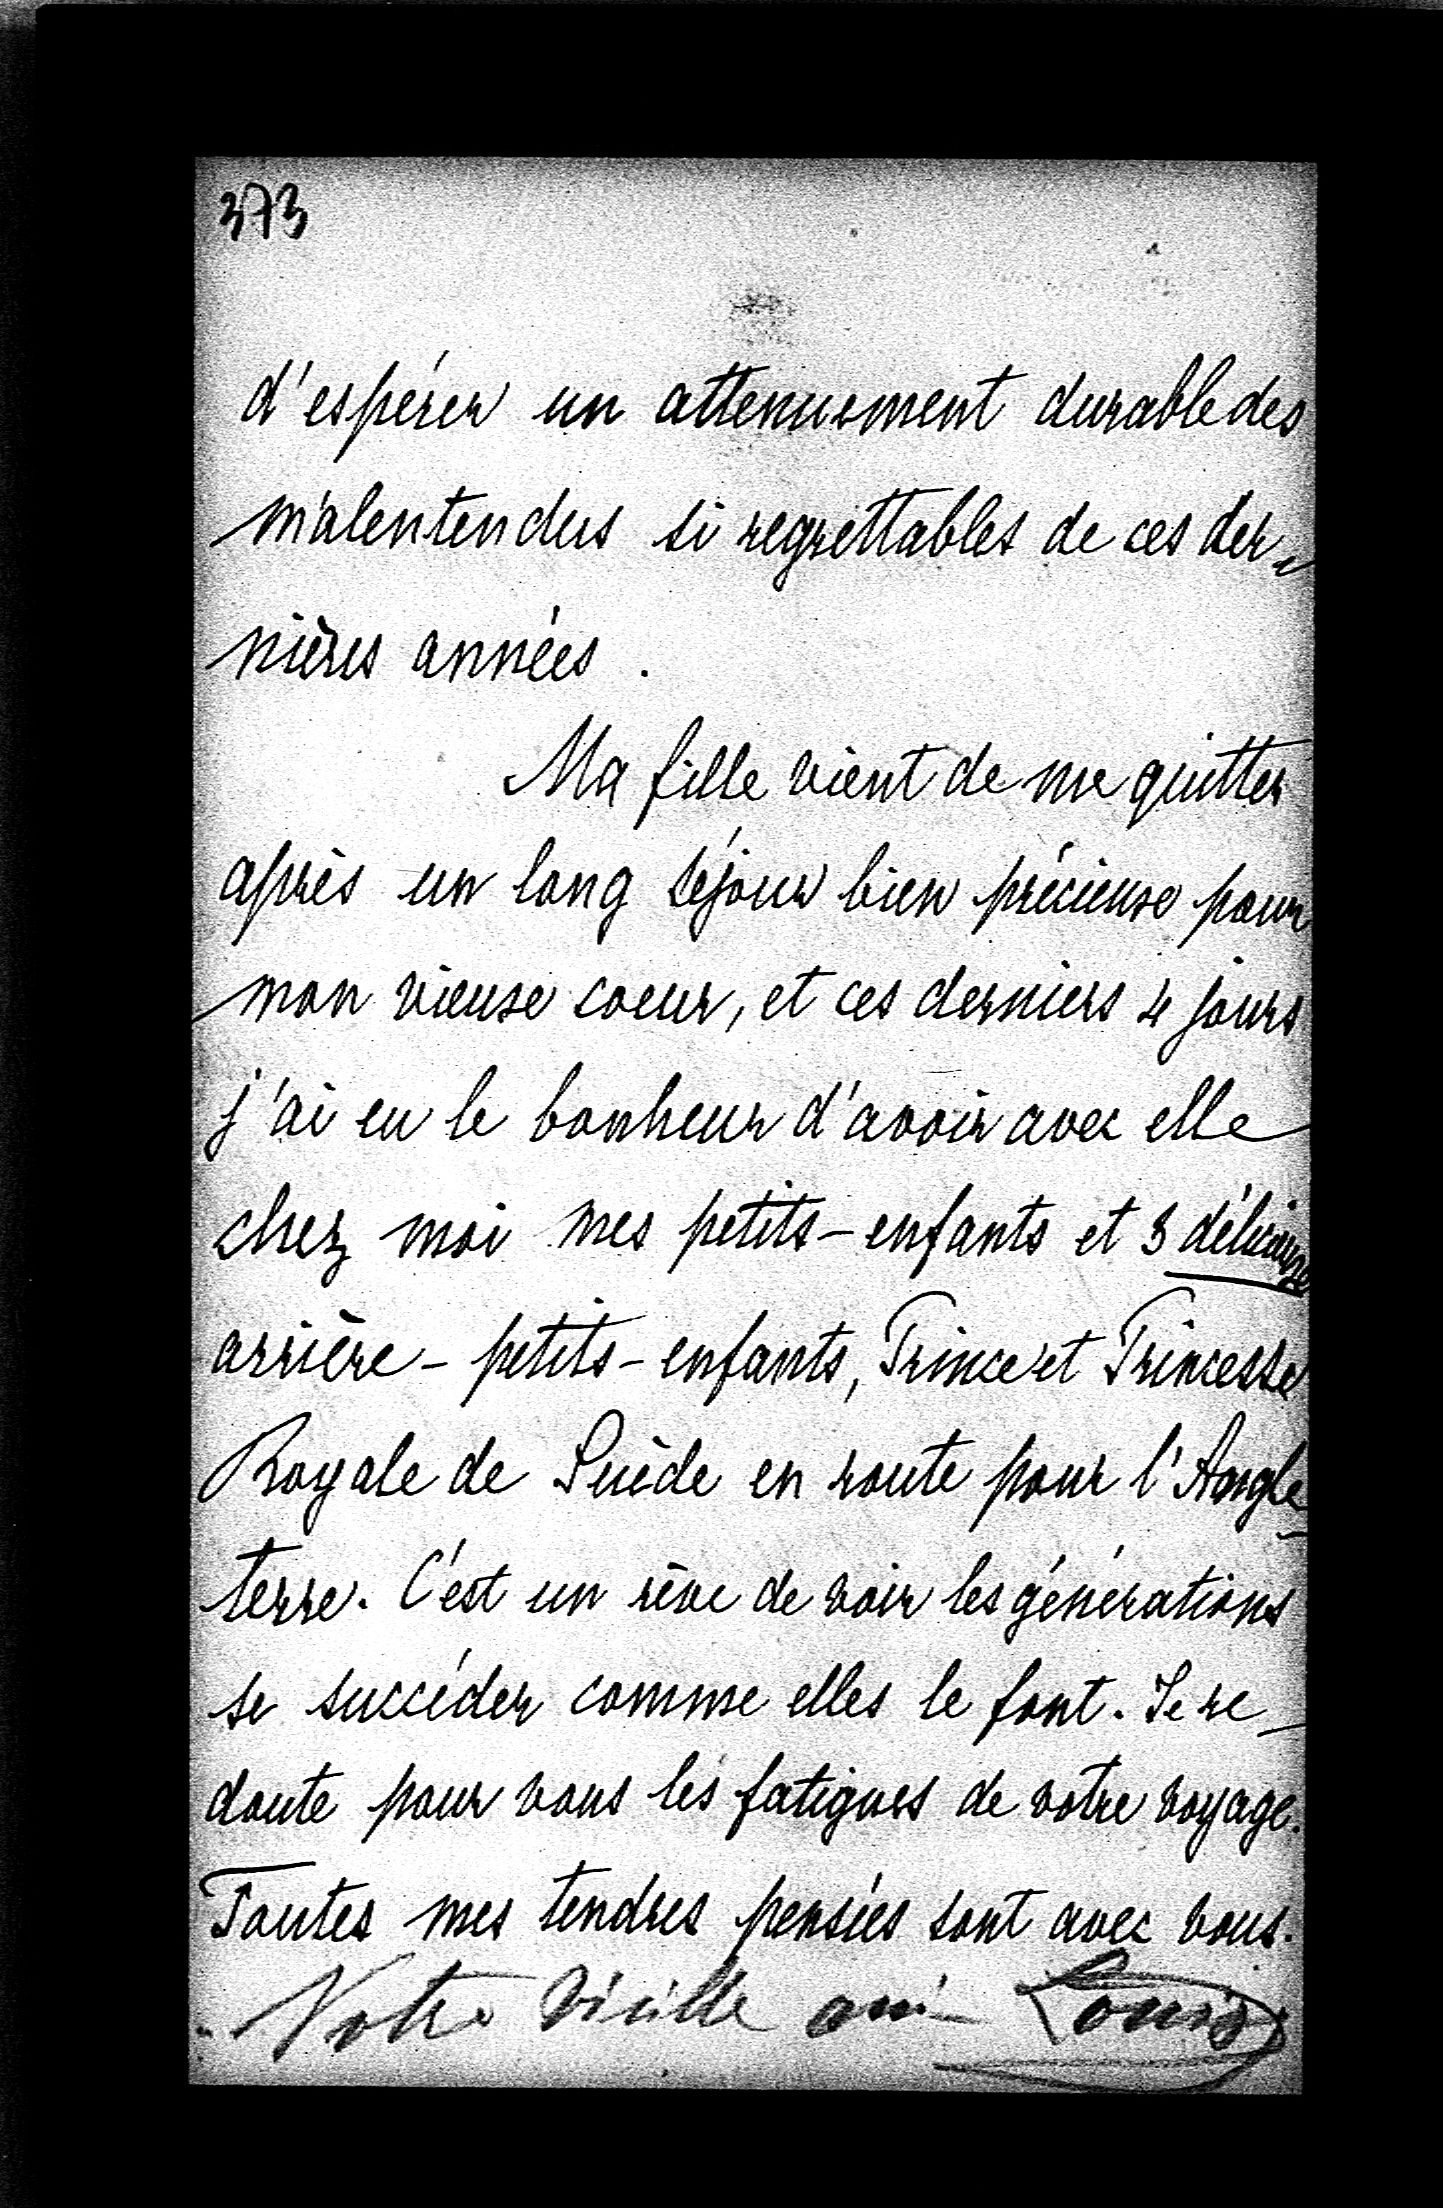 373
d'espérer un attenuement durable des
malentendus si regrettables de ces der-
nières années.
Ma fille vient de me quitter
après un long séjour bien précieuse pour
mon vieuse coeur, et ces derniers 4 jours
j'ai eu le bonheur d'avoir avec elle
chez moi mes petits-enfants et 3
arrière-petits-enfants, Prince et Princesse
Royale de Suède en route pour l'Angle-
terre. C'est un rêve de voir les générations
se succéder comme elles le font. Je re-
doute pour vous les fatigues de votre voyage.
Toutes mes tendres pensées sont avec vous.
Votre vieille